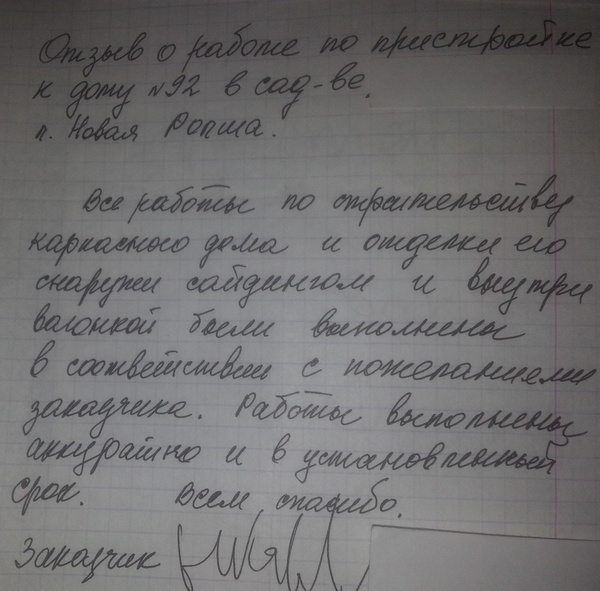 Отзыв о работе по пристройке
к дому №92 в сад-ве.
п. Новая Ропша.
Все работы по строительству
каркасного дома и отделки его
снаружи сайдингом и внутри
вагонкой были выполнены
в соответствии с пожеланиями
заказчика. Работы выполнены
аккуратно и в установленный
срок. Всем спасибо.
Заказчик